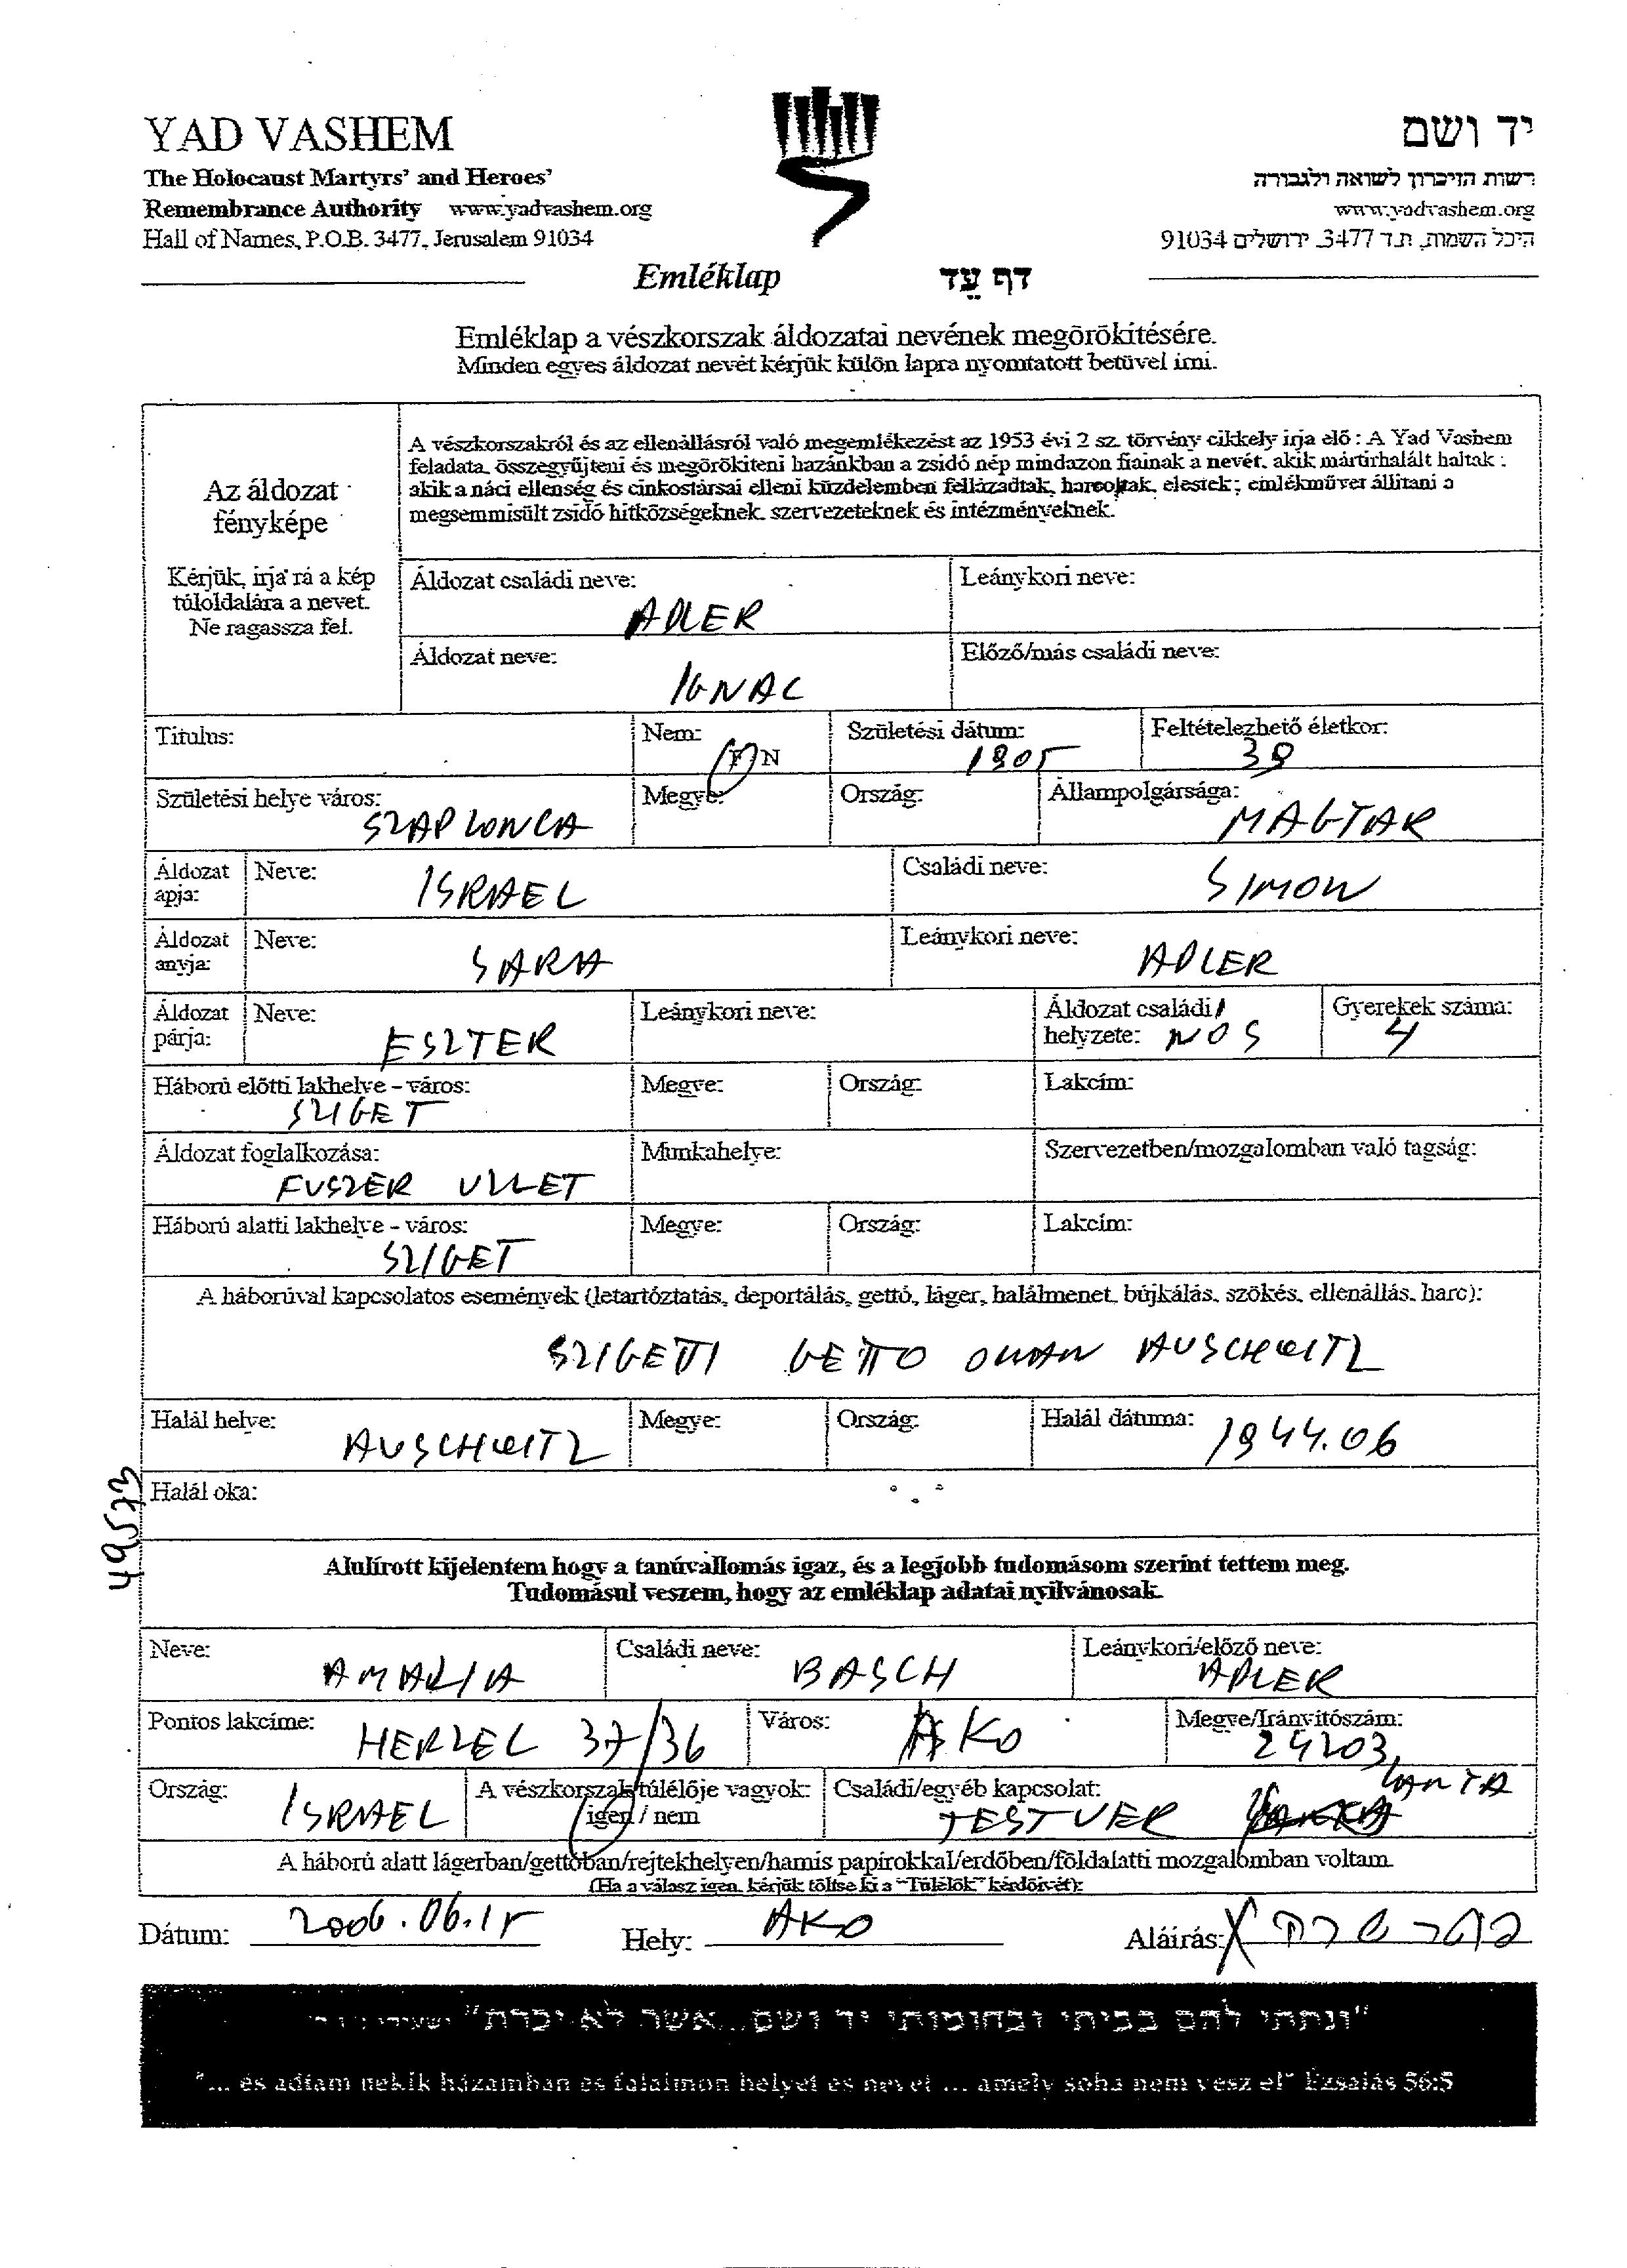 YAD VASHEM
The Holocaust Martyrs' and Heroes'
Remembrance Authority www.yadvashem.org
Hall of Names, P.O.B. 3477, Jerusalem 91034
יד ושם
רשות הזיכרון לשואה ולגבורה
www.yadvashem.org
היכל השמות, ת.ד 3477. ירושלים 91034
Emléklap דף עֵד
Emléklap a vészkorszak áldozatai nevének megörökítésére.
Minden egyes áldozat nevét kérjük külön lapra nyomtatott betüvel irni.
Az áldozat
fényképe
Kérjük, irja rá a kép
túloldalára a nevet.
Ne ragassza fel.
A vészkorszakról és az ellenállásról való megemlékezést az 1953 évi 2 sz. törvény cikkely irja elő: A Yad Vashem
feladata, összegyűjteni és megörökiteni hazánkban a zsidó nép mindazon fiainak a nevét, akik mártirhalált haltak;
akik a náci ellenség és cinkostársai elleni küzdelemben fellázadtak, harcoltak, elestek; emlékművet állitani a
megsemmisült zsidó hitközségeknek, szervezeteknek és intézményeknek.
Áldozat családi neve: ADLER Leánykori neve:
Áldozat neve: IGNAC Előző/más családi neve:
Titulus: Nem: F N Születési dátum: 1905 Feltételezhető életkor: 39
Születési helye város: SZAPLONCA Megye: Ország: Állampolgársága: MAGYAR
Áldozat apja: Neve: ISRAEL Családi neve: SIMON
Áldozat anyja: Neve: SARA Leánykori neve: ADLER
Áldozat párja: Neve: ESZTER Leánykori neve: Áldozat családi helyzete: NOS Gyerekek száma: 4
Háború előtti lakhelye – város: SZIGET Megye: Ország: Lakcím:
Áldozat foglalkozása: FUSZER UZLET Munkahelye: Szervezetben/mozgalomban való tagság:
Háború alatti lakhelye – város: SZIGET Megye: Ország: Lakcím:
A háborúval kapcsolatos események (letartóztatás, deportálás, gettó, láger, halálmenet, bújkálás, szökés, ellenállás, harc):
SZIGETI GETTO AUSCHWITZ
Halál helye: AUSCHWITZ Megye: Ország: Halál dátuma: 1944.06
Halál oka:
Alulírott kijelentem hogy a tanúvallomás igaz, és a legjobb tudomásom szerint tettem meg.
Tudomásul veszem, hogy az emléklap adatai nyilvánosak.
Neve: AMALIA Családi neve: BASCH Leánykori/előző neve: ADLER
Pontos lakcíme: HERZEL 37/36 Város: AKO Megye/Irányítószám: 24203
Ország: ISRAEL A vészkorszak túlélője vagyok: igen / nem Családi/egyéb kapcsolat: TESTVER
A háború alatt lágerban/gettóban/rejtekhelyen/hamis papírokkal/erdőben/földalatti mozgalomban voltam.
(Ha a válasz igen, kérjük töltse ki a "Túlélők" kérdőívét):
Dátum: 2006.06.15 Hely: AKO Aláírás:
"ונתתי להם בביתי ובחומותי יד ושם...אשר לא יכרת"
"... és adtam nekik házamban és falaimon helyet és nevet ... amely soha nem vesz el" Ézsaiás 56:5